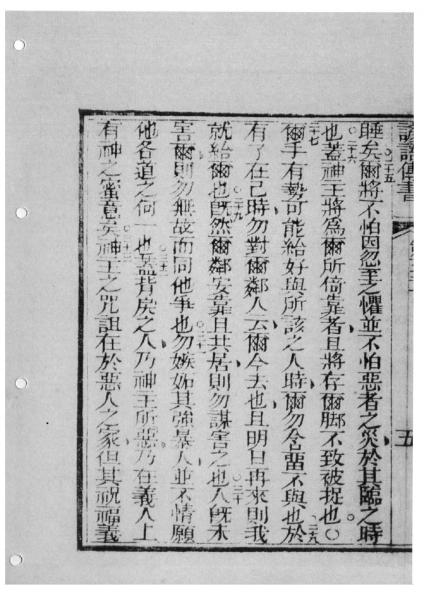 諺語傳書 五
睡矣○二十五爾將不怕因忽至之懼並不怕惡者之災於其臨之時
也○二十六蓋神王將爲爾所倚靠者且將存爾腳不致被捉也○
二十七爾手有勢可能給好與所該之人時爾勿吝留不與也於二十八
有了在己時勿對爾鄰人云爾今去也且明日再來則我
就給爾也○二十九旣然爾鄰安靠且共居則勿謀害之也○三十人旣未
害爾則勿無故而同他爭也○三十一勿嫉妬其強暴人並不情願
他各道之何一也○三十二蓋背戾之人乃神王所惡乃在義人上
有神之蜜意矣○三十三神王之咒詛在於惡人之家但其祝福義